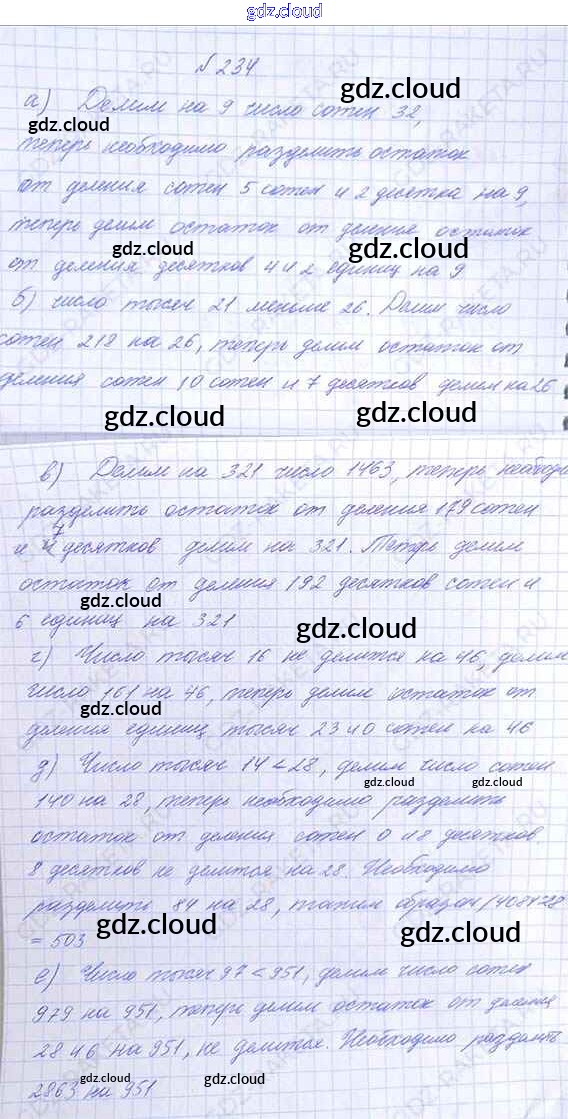 gdz.cloud
№ 234
gdz.cloud
а) Делим на 9 число сотен 32,
gdz.cloud
теперь необходимо разделить остаток
от деления сотен 5 сотен и 2 десятка на 9,
теперь делим остаток от деленья остаток
gdz.cloud gdz.cloud
от деления десятков 4 и 2 единиц на 9
б) число тысяч 21 меньше 26. Делим число
сотен 218 на 26, теперь делим остаток от
деления сотен 10 сотен и 7 десятков делим на 26
gdz.cloud gdz.cloud
в) Делим на 321 число 1463, теперь необходи
разделить остаток от деления 179 сотен
и 7 десятков делим на 321. Теперь делим
остаток от деления 192 десятков сотен и
gdz.cloud
6 единиц на 321
gdz.cloud
г) Число тысяч 16 не делится на 46, делим
число 161 на 46, теперь делим остаток от
gdz.cloud
деления единиц тысяч 23 40 сотен на 46
д) Число тысяч 14 < 28, делим число сотен
gdz.cloud gdz.cloud
140 на 28, теперь необходимо разделить
остаток от деления сотен 0 и 8 десятков.
8 десятков не делится на 28. Необходимо
разделить 84 на 28, таким образом 14084:28
gdz.cloud gdz.cloud
= 503
е) Число тысяч 97 < 951, делим число сотен
979 на 951, теперь делим остаток от деления
28 46 на 951, не делится. Необходимо разделить
2863 на 951
gdz.cloud gdz.cloud